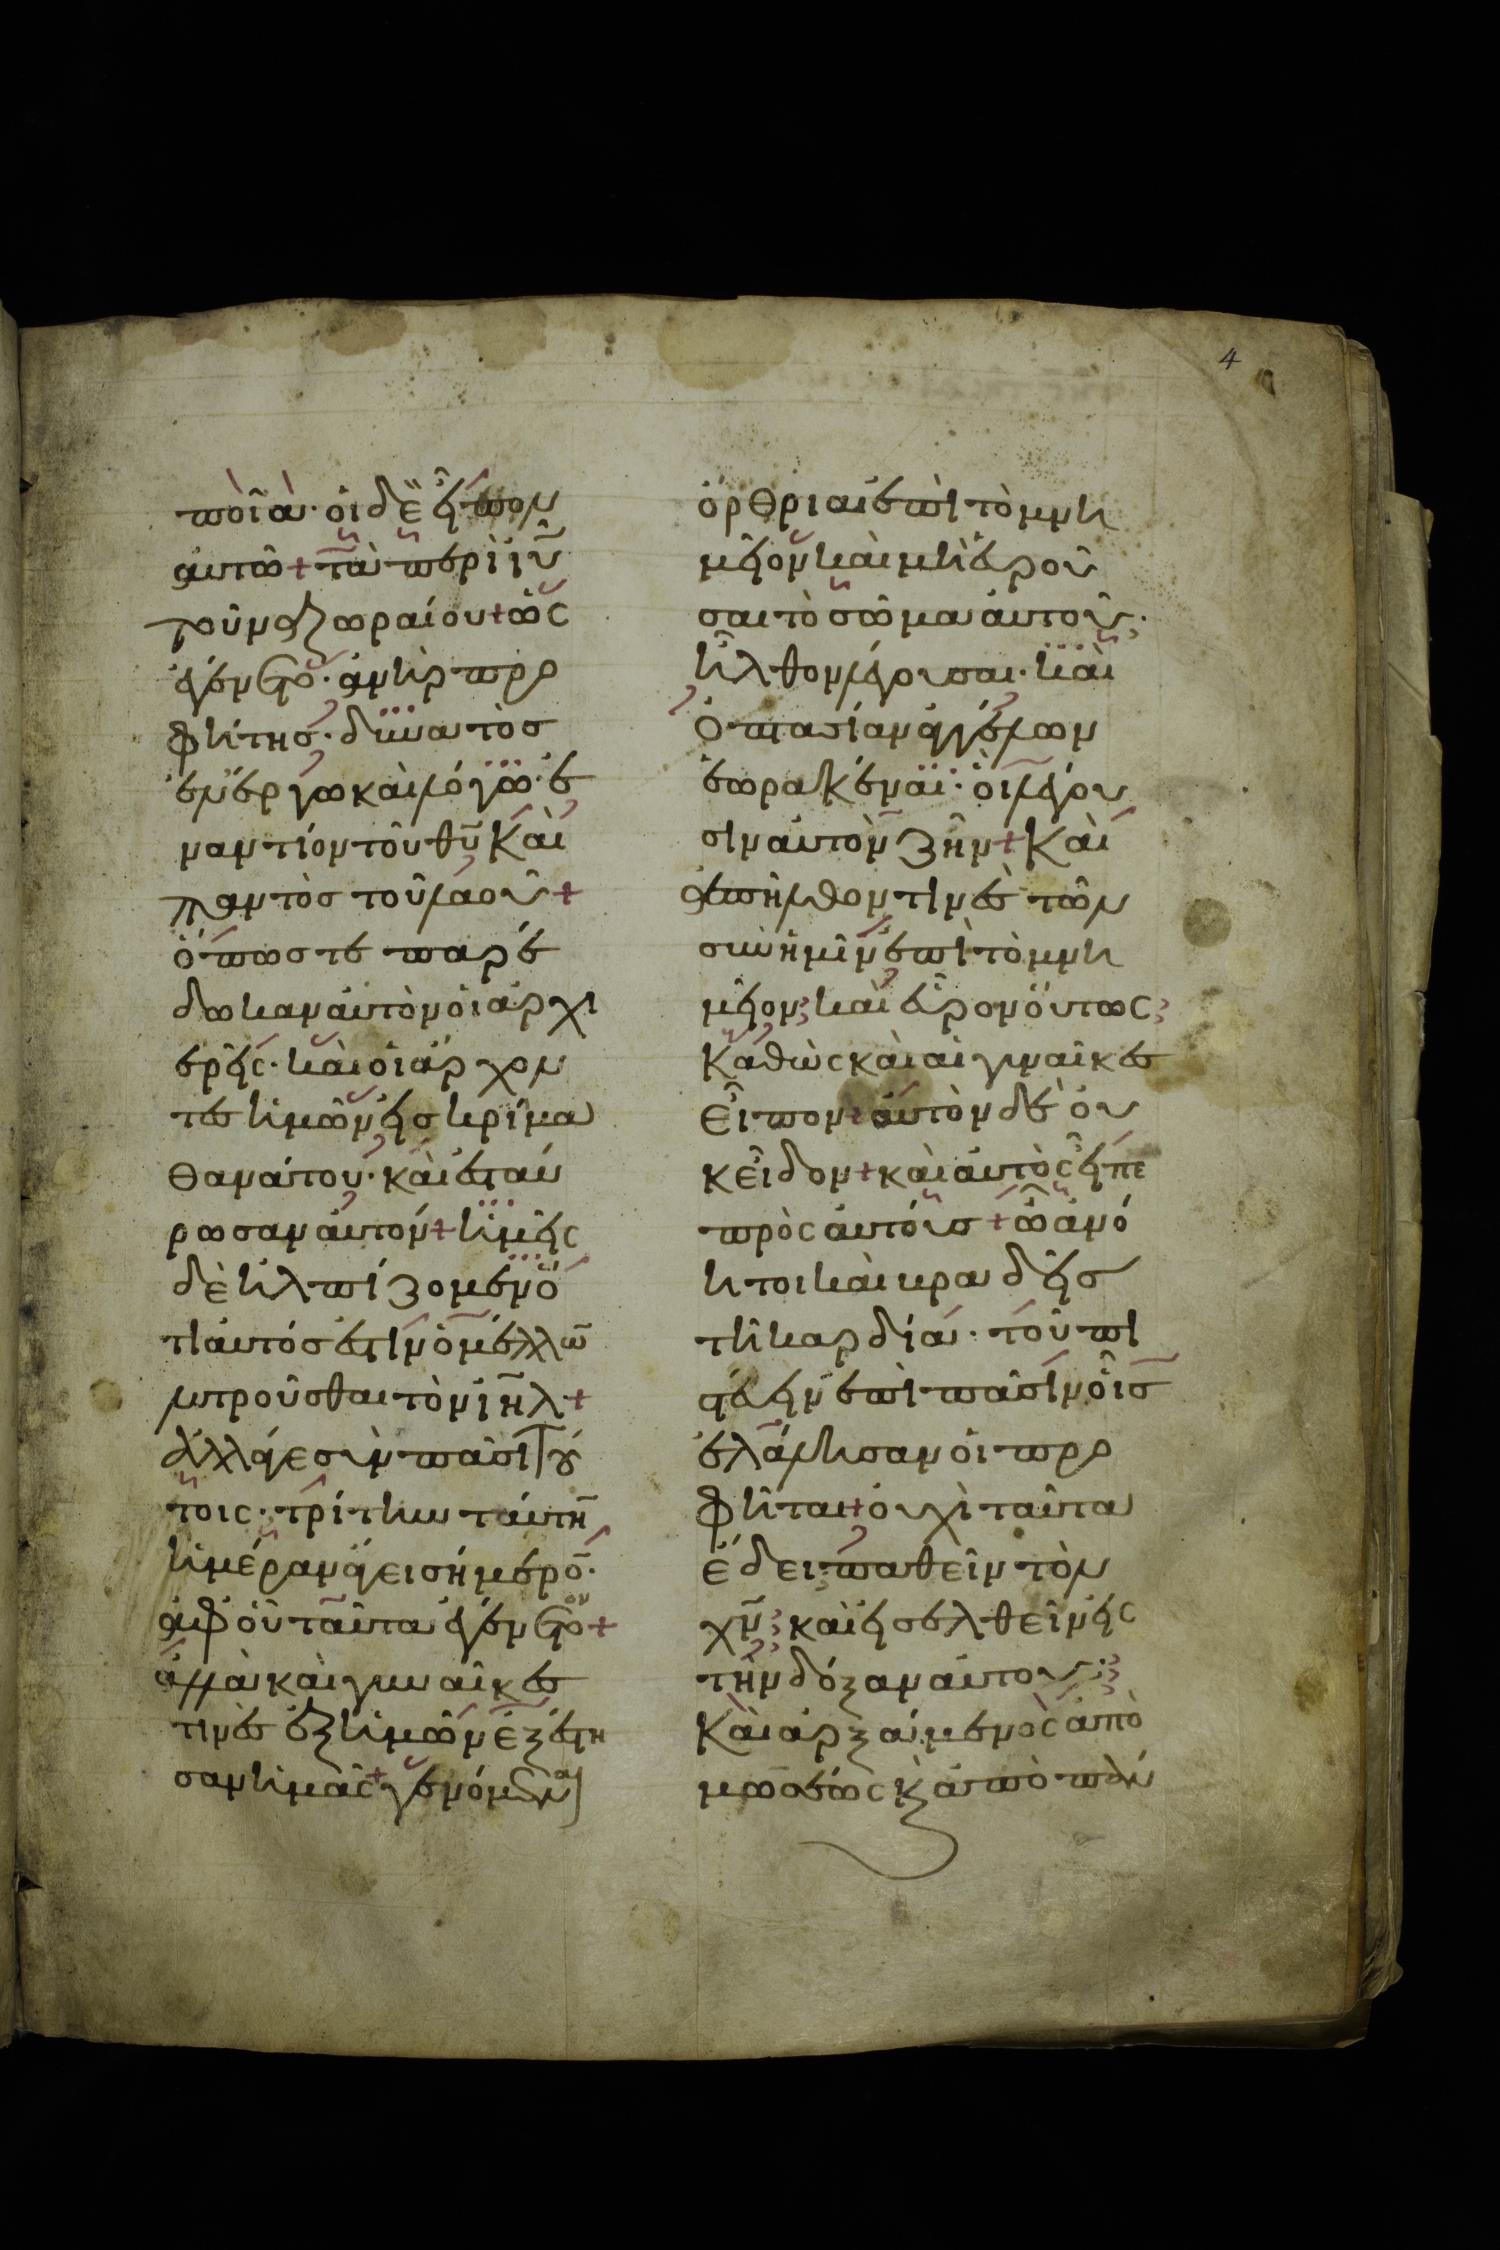 4
ποῖα· οἱ δὲ εἶπον
αυτῶ + τὰ περὶ ιῦ
τοῦ ναζωραίου + ὡς
ἐγένετο· ἀνὴρ προ
φήτησ· δυνατὸσ
ἐν ἔργω καὶ λόγω· ἐ
ναντίον τοῦ θῦ καὶ
παντὸσ τοῦ λαοῦ +
ὅπωσ τε παρέ
δωκαν ἀυτὸν οἱ ἀρχι
ερεῖς· καὶ οἱ ἄρχον
τεσ ἡμῶν εἰσ κρίμα
θανάτου· κὰι ἐσταύ
ρωσαν ἀυτόν + ἡμεῖς
δὲ ἠλπίζομεν ὅ
τι ἀυτόσ ἐστιν ὁ μέλλω̄
λυτροῦσθαι τὸν ιη̄λ +
ἀλλάγε σὺν πᾶσι τού
τοις· τρίτην ταύτη̄
ἡμέραν ἄγει σήμερο̄·
ἀφ οὗ ταῦτα ἐγένετο +
ἀλλὰ καὶ γυναῖκεσ
τινὲσ ἐξ ἡμῶν ἐξέστη
σαν ἡμᾶς + γενόμεναι
ὄρθριαι ἐπὶ τὸ μνη
μεῖον καὶ μὴ ἑυροῦ
σαι τὸ σῶμα ἀυτοῦ·
ἦλθον λέγουσαι· καὶ
ὀπτασίαν ἀγγέλων
ἑωρακέναι· ὁὶ λέγου
σιν ἀυτὸν ζῆν + Καὶ
ἀπῆλθον τινὲσ τῶν
σὺν ἡμῖν ἐπὶ τὸ μνη
μεῖον· καὶ ἑῦρον ὄυτως
Καθὼς κὰι αἱ γυναῖκεσ
εἶπον + ἀυτὸν δὲ ὀυ
κ εἶδον + κὰι ἀυτὸς εἶπε
πρὸς ἀυτόυσ + ὦ ἀνό
ητοι κὰι βραδεῖσ
τῆ καρδία· τοῦ πι
στέυειν ἐπὶ πᾶσιν οἷσ
ἐλάλησαν ὁι προ
φῆται + ὀυχὶ ταῦτα
ἔδει παθεῖν τὸν
χν̄· κὰι εἰσελθεῖν εἰς
τὴν δόξαν ἀυτου·
Κὰι ἀρξάμενὸς ἀπὸ
μωσέως κ ἀπὸ πάν